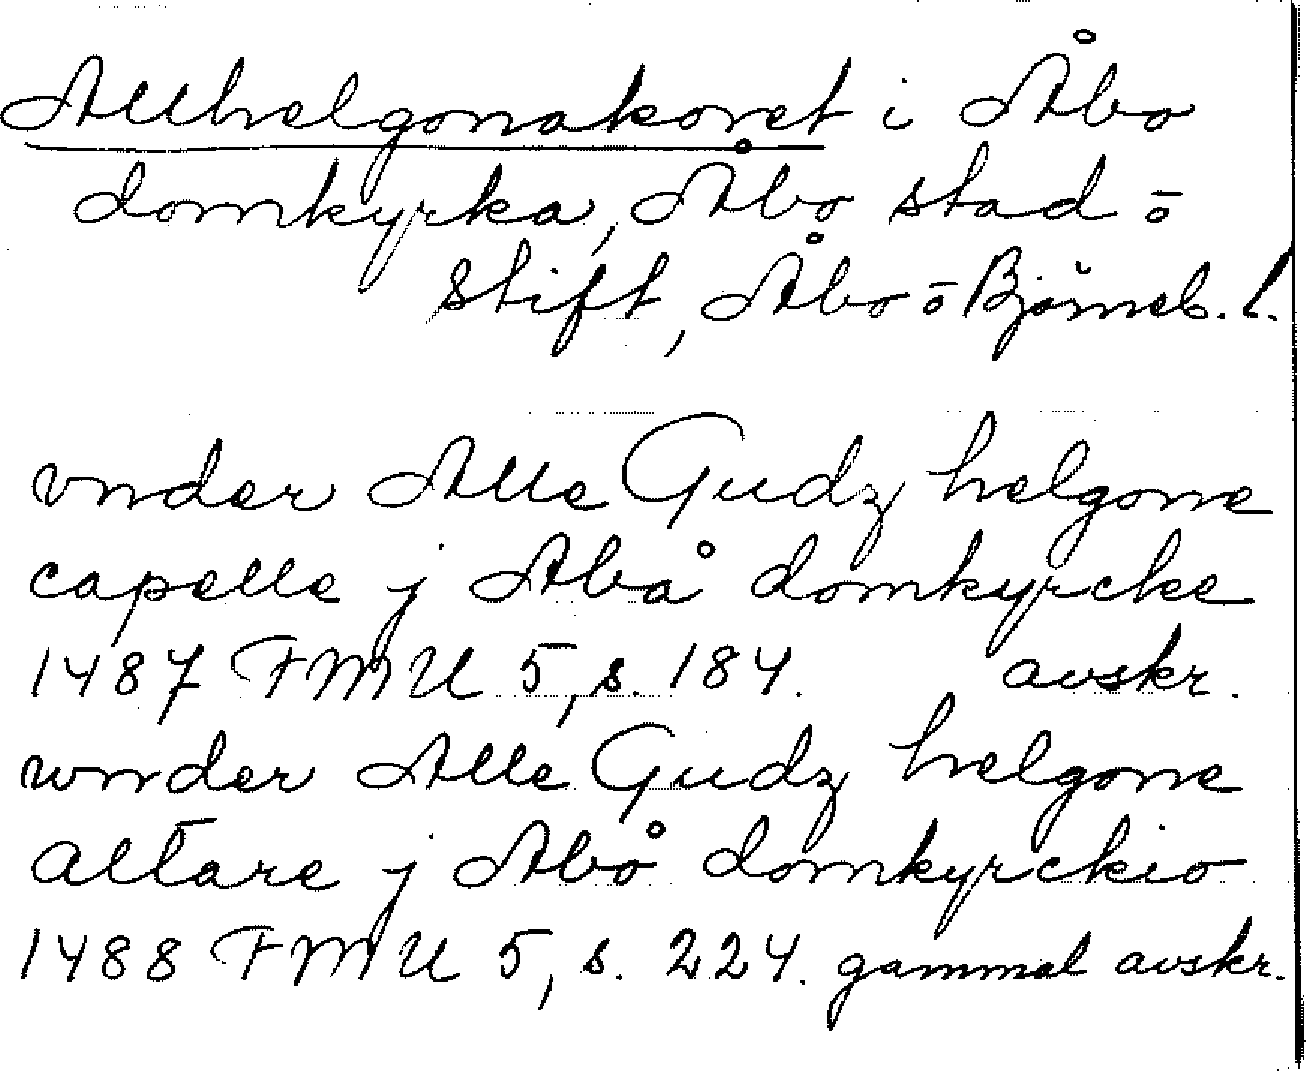 Allhelgonakoret i Åbo
domkyrka, Åbo stad o
stift, Åbo o Björneb. l.
vnder Alle Gudz helgone
capelle j Abå domkyrcke
1487 FMU 5, s. 184. avskr.
wnder Alle Gudz helgone
altare j Abo̊ domkyrckio
1488 FMU 5, s. 224. gammal avskr.